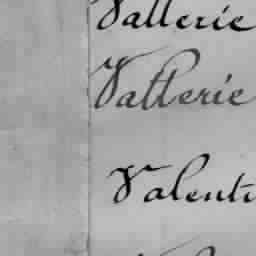 Vallerie
Vallerie
Valenti